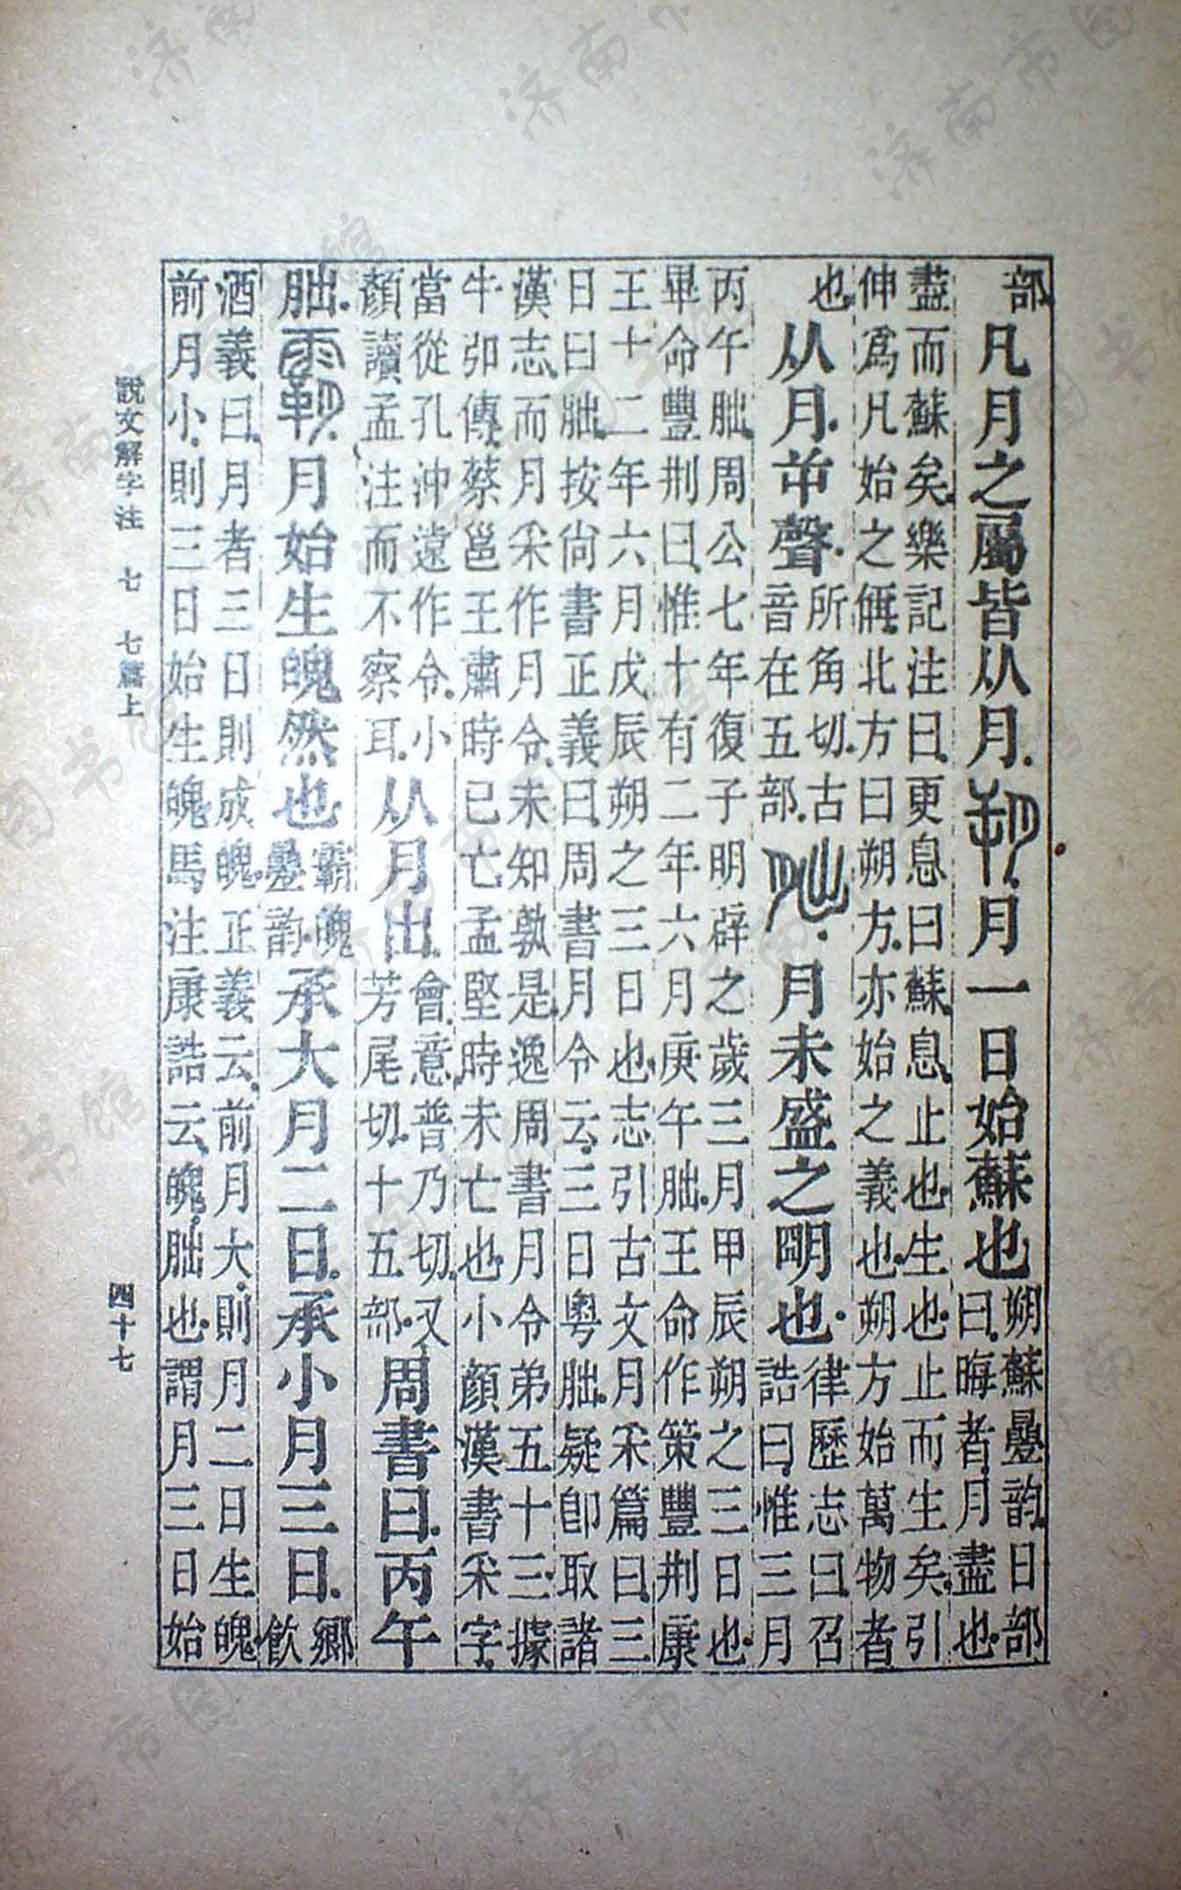 部凡月之屬皆从月朔月一日始蘇也朔蘇曡韵日部曰晦者月盡也
盡而蘇矣樂記注曰更息曰蘇息止也生也止而生矣引
伸爲凡始之偁北方曰朔方亦始之義也朔方始萬物者
也从月屰聲所角切古音在五部朏月未盛之明也律歷志曰召誥曰惟三月
丙午朏周公七年復子明辟之歲三月甲辰朔之三日也
畢命豐刑曰惟十有二年六月庚午朏王命作策豐刑康
王十二年六月戊辰朔之三日也志引古文月采篇曰三
日曰朏按尙書正義曰周書月令云三日粵朏疑卽取諸
漢志而月采作月令未知孰是逸周書月令弟五十三據
牛弘傳蔡邕王肅時已亡孟堅時未亡也小顏漢書采字
當從孔沖遠作令小顏讀孟注而不察耳从月出會意普乃切又芳尾切十五部周書曰丙午
朏霸月始生魄然也霸魄曡韵承大月二日承小月三日鄉飮
酒義曰月者三日則成魄正義云前月大則月二日生魄
前月小則三日始生魄馬注康誥云魄朏也謂月三日始
說文解字注 七 七篇上 四十七
济南市图书馆